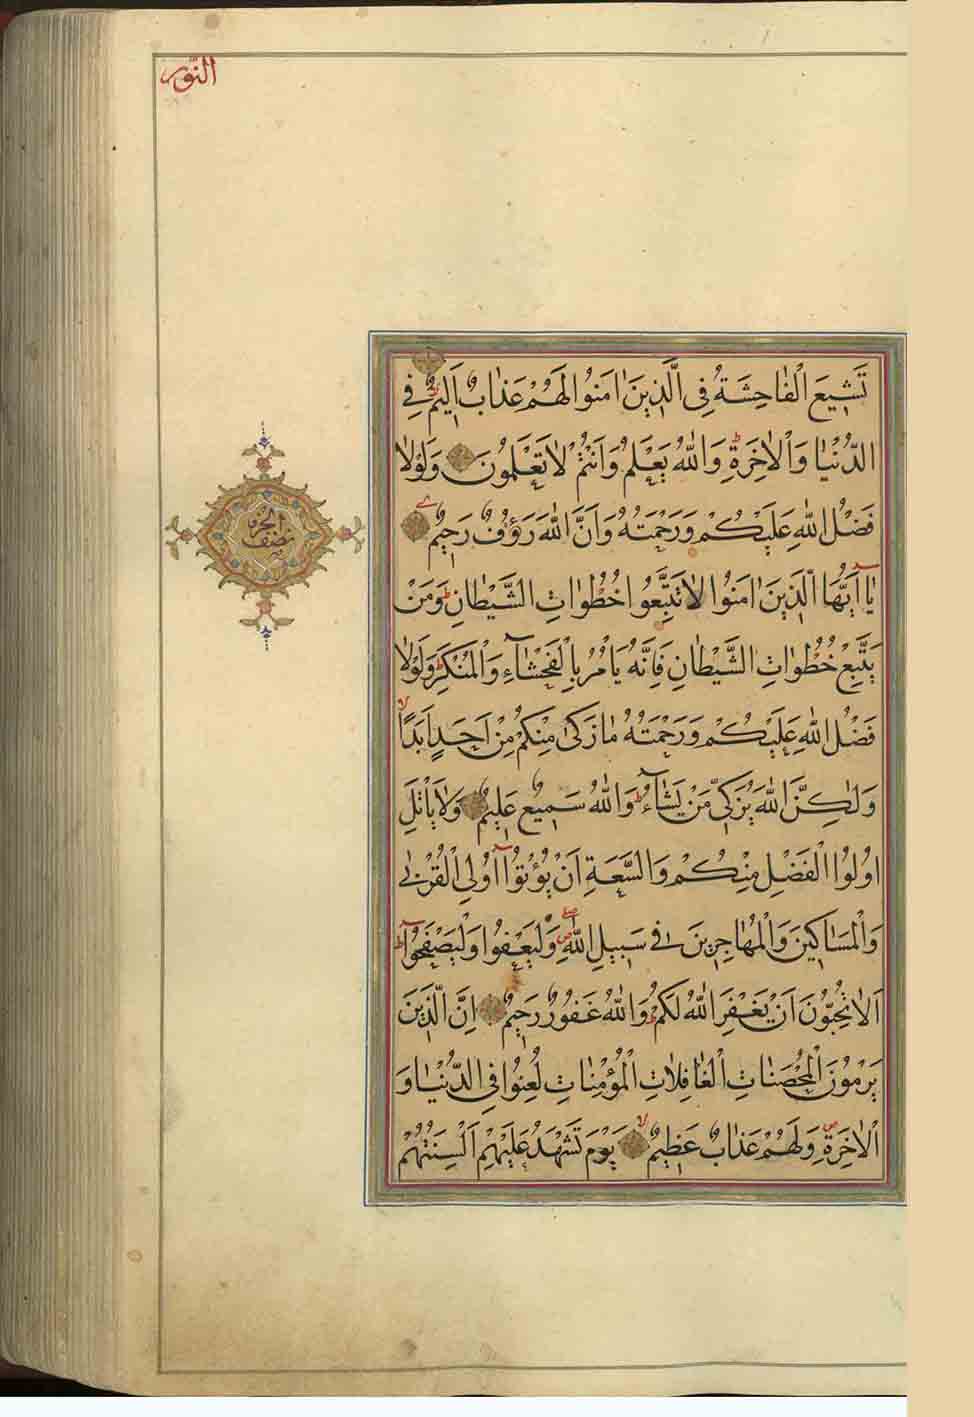 النّور
تَشِيعَ الْفَاحِشَةُ فِى الَّذِينَ اٰمَنُوا لَهُمْ عَذَابٌ اَلِيمٌ فِى
الدُّنْيَا وَالْاٰخِرَةِ وَاللّٰهُ يَعْلَمُ وَاَنْتُمْ لَا تَعْلَمُونَ وَلَوْلَا
فَضْلُ اللّٰهِ عَلَيْكُمْ وَرَحْمَتُهُ وَاَنَّ اللّٰهَ رَؤُفٌ رَحِيمٌ
يَا اَيُّهَا الَّذِينَ اٰمَنُوا لَا تَتَّبِعُوا خُطُوَاتِ الشَّيْطَانِ وَمَنْ
يَتَّبِعْ خُطُوَاتِ الشَّيْطَانِ فَاِنَّهُ يَاْمُرُ بِالْفَحْشَآءِ وَالْمُنْكَرِ وَلَوْلَا
فَضْلُ اللّٰهِ عَلَيْكُمْ وَرَحْمَتُهُ مَا زَكٰى مِنْكُمْ مِنْ اَحَدٍ اَبَدًا
وَلٰكِنَّ اللّٰهَ يُزَكِّى مَنْ يَشَآءُ وَاللّٰهُ سَمِيعٌ عَلِيمٌ وَلَا يَاْتَلِ
اُولُوا الْفَضْلِ مِنْكُمْ وَالسَّعَةِ اَنْ يُؤْتُوا اُولِى الْقُرْبٰى
وَالْمَسَاكِينَ وَالْمُهَاجِرِينَ فِى سَبِيلِ اللّٰهِ وَلْيَعْفُوا وَلْيَصْفَحُوا
اَلَا تُحِبُّونَ اَنْ يَغْفِرَ اللّٰهُ لَكُمْ وَاللّٰهُ غَفُورٌ رَحِيمٌ اِنَّ الَّذِينَ
يَرْمُونَ الْمُحْصَنَاتِ الْغَافِلَاتِ الْمُؤْمِنَاتِ لُعِنُوا فِى الدُّنْيَا وَ
الْاٰخِرَةِ وَلَهُمْ عَذَابٌ عَظِيمٌ يَوْمَ تَشْهَدُ عَلَيْهِمْ اَلْسِنَتُهُمْ
نصف
الحزب